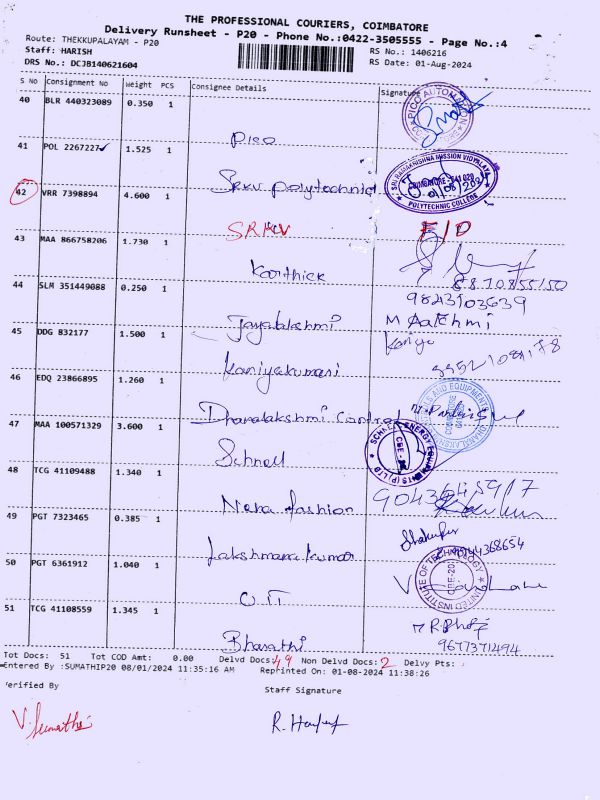 THE PROFESSIONAL COURIERS, COIMBATORE
Delivery Runsheet - P20 - Phone No.:0422-3505555 - Page No.:4
Route: THEKKUPALAYAM - P20
RS No.: 1406216
Staff: HARISH
RS Date: 01-Aug-2024
DRS No.: DCJB140621604
S No Consignment No Weight PCS Consignee Details Signature
40 BLR 440323089 0.350 1
Pico
41 POL 2267227 1.525 1
SRKV polytechnic
SRI RAMAKRISHNA MISSION VIDYALAYA
COIMBATORE - 641 020
POLYTECHNIC COLLEGE
42 VRR 7398894 4.600 1
SRKV
43 MAA 866758206 1.730 1
Karthick
8870855150
44 SLM 351449088 0.250 1
9843103639
Jayalakshmi
45 DDG 832177 1.500 1
Kaniyakumari
46 EDQ 23866895 1.260 1
Dhanalakshmi Control
47 MAA 100571329 3.600 1
Schnell
48 TCG 41109488 1.340 1
Neha fashion
49 PGT 7323465 0.385 1
Lakshmana kumar
50 PGT 6361912 1.040 1
UNITED INSTITUTE OF TECHNOLOGY
51 TCG 41108559 1.345 1
Bharathi
9677371494
Tot Docs: 51 Tot COD Amt: 0.00 Delvd Docs: 49 Non Delvd Docs: 2 Delvy Pts:
Entered By :SUMATHIP20 08/01/2024 11:35:16 AM Reprinted On: 01-08-2024 11:38:26
Verified By
Staff Signature
V. Sumathi